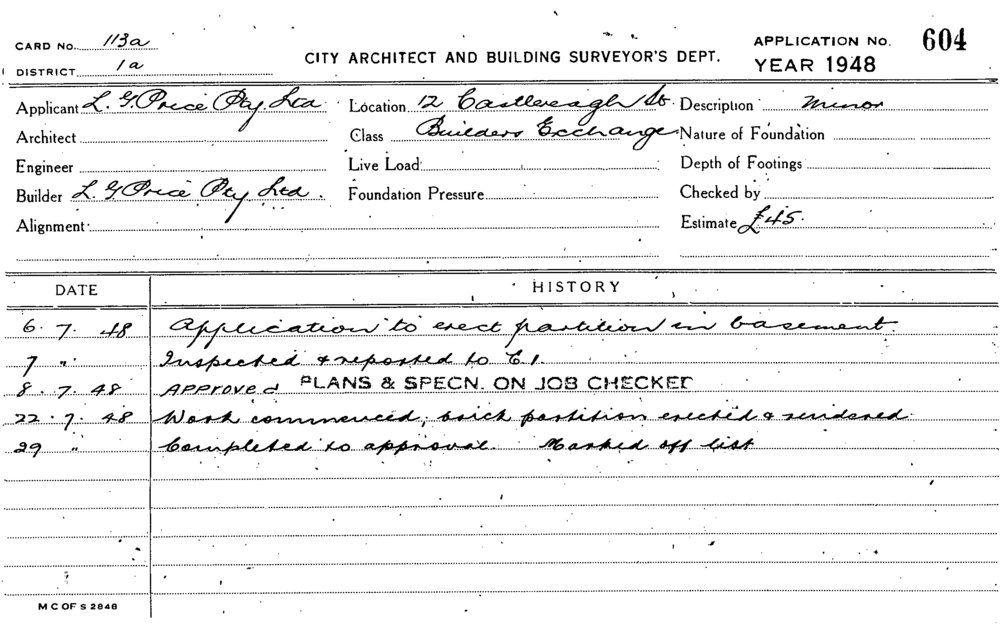 CARD No. 113a
CITY ARCHITECT AND BUILDING SURVEYOR'S DEPT.
APPLICATION No. 604
DISTRICT 1a
YEAR 1948
Applicant L. G Price Pty Ltd Location 12 Castlereagh St. Description minor
Architect Class Builders Exchange Nature of Foundation
Engineer Live Load Depth of Footings
Builder L. G Price Pty Ltd. Foundation Pressure Checked by
Alignment Estimate £45.
DATE HISTORY
6. 7. 48 Application to erect partition in basement
7 " Inspected & reported to C.I.
8. 7. 48 APPROVED PLANS & SPECN. ON JOB CHECKED
22. 7. 48 Work commenced, brick partition erected & rendered.
29 " Completed to approval. Marked off list
M C OF S 2848